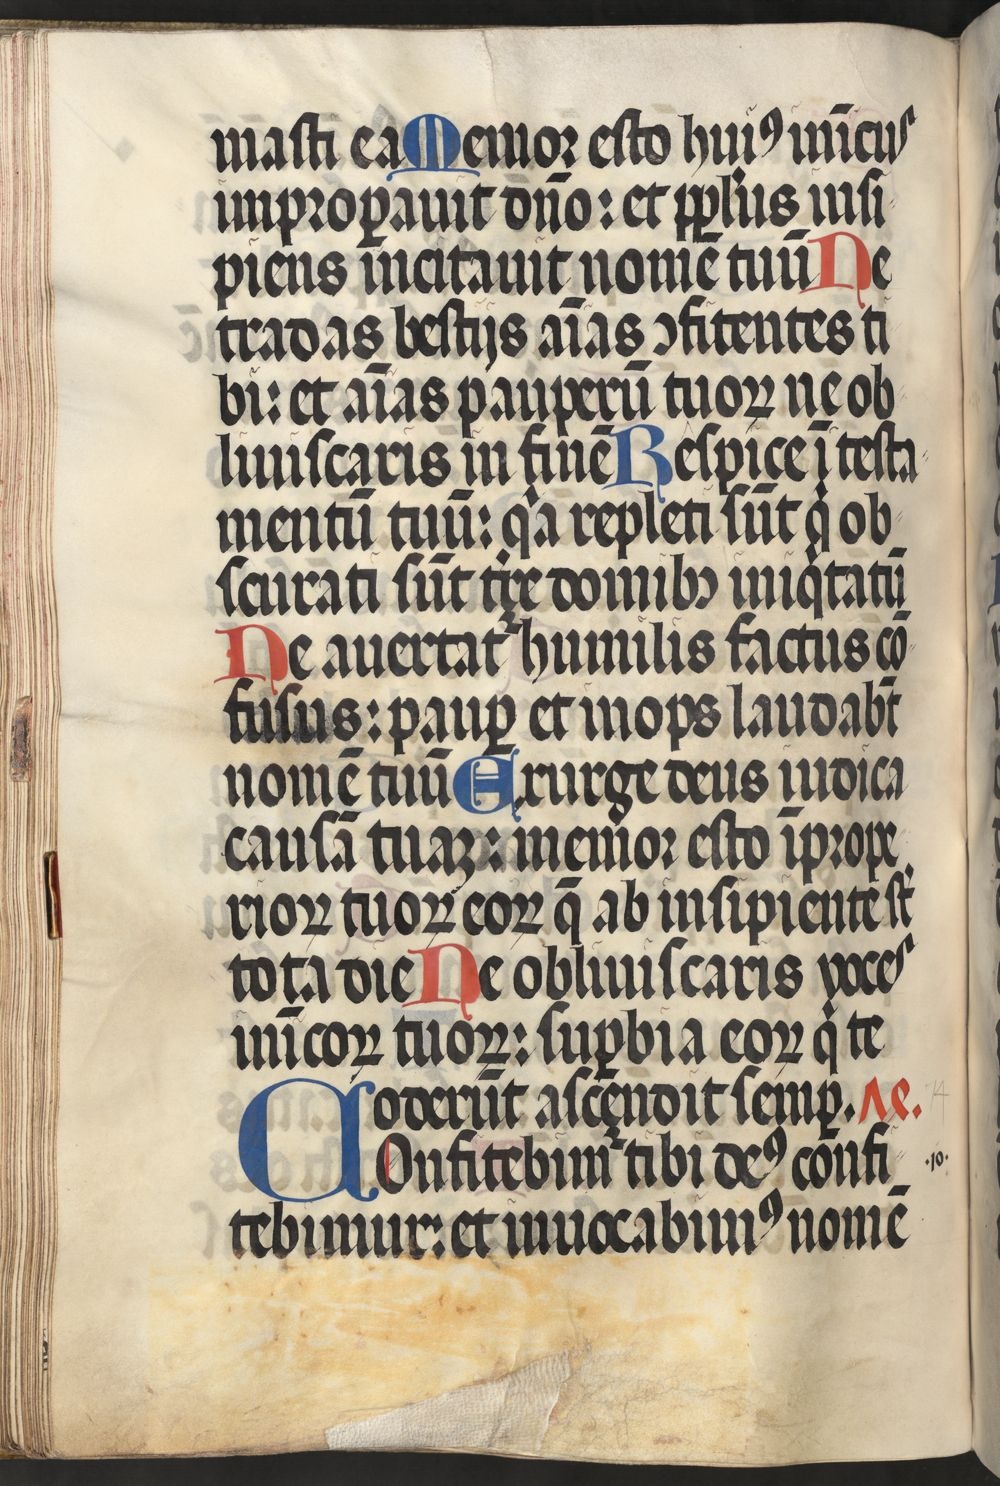 masti ea Memor esto huiꝰ inīcus
improꝑauit dño: et ppl̕us insi
piens incitauit nomē tuū Ne
tradas bestijs aīas ↄfitentes ti
bi: et aīas pauperū tuoꝝ ne ob
liuiscaris in finē Respice ī testa
mentū tuū: qͣa repleti sūt qͥ ob
scurati sūt trͤe domibꝫ iniqͥtatū
Ne auertatᷣ humilis factus cō
fusus: pauꝑ et inops laudabt̄
nomē tuū Exurge deus iudica
causā tuaꝫ: memor esto īprope
rioꝝ tuoꝝ eoꝝ q̄ ab insipiente st̄
tota die Ne obliuiscaris voces
inīcoꝝ tuoꝝ: suꝑbia eoꝝ qͥ te
oderūt ascēndit semꝑ. ps.
COnfitebimᷣ tibi deꝰ confi
tebimur: et inuocabimꝰ nomē
74
·10·